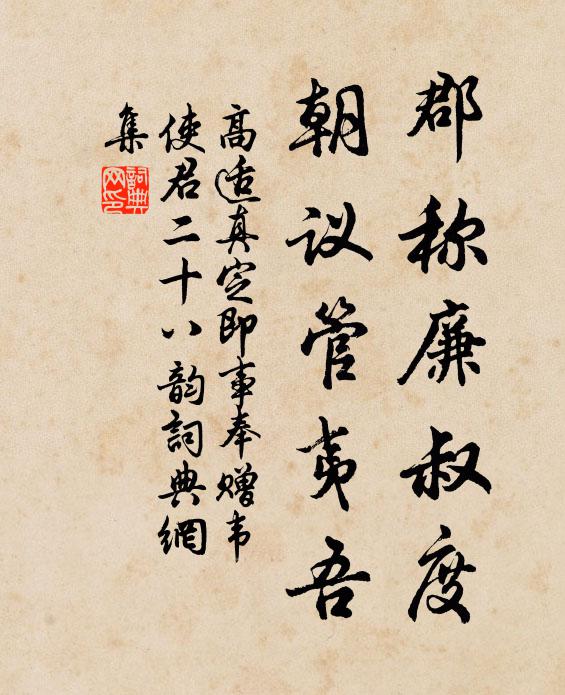 郡称廉叔度
朝议管夷吾
高适真定即事奉赠韦
使君二十八韵詞典網
集
詞典
网印